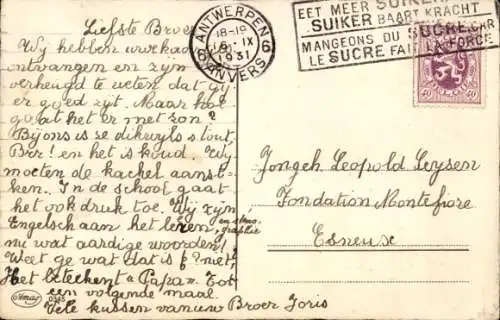 Liefste Broer
Wij hebben uw kaart
ontvangen en zijn
verheugd te weten dat gij
er goed zijt. Maar hoe
gaat het er met zon?
Bij ons is ze dikwijls stout.
Brr! en het is koud. Wij
moeten de kachel aanste-
ken. In de school gaat
het ook druk toe. Wij zijn
Engelsch aan het leren,
nu wat aardige woorden!
Weet ge wat dat is f? niet,
Het beteekent "Papa". Tot
een volgende maal.
Vele kussen van uw Broer Joris
ANTWERPEN 6
18-19
IX
1931
6 ANVERS
EET MEER SUIKER
SUIKER BAART KRACHT
MANGEONS DU SUCRE, CAR
LE SUCRE FAIT LA FORCE
40 40
Jongeh. Leopold Leysen
Fondation Montefiore
Esneux
0365